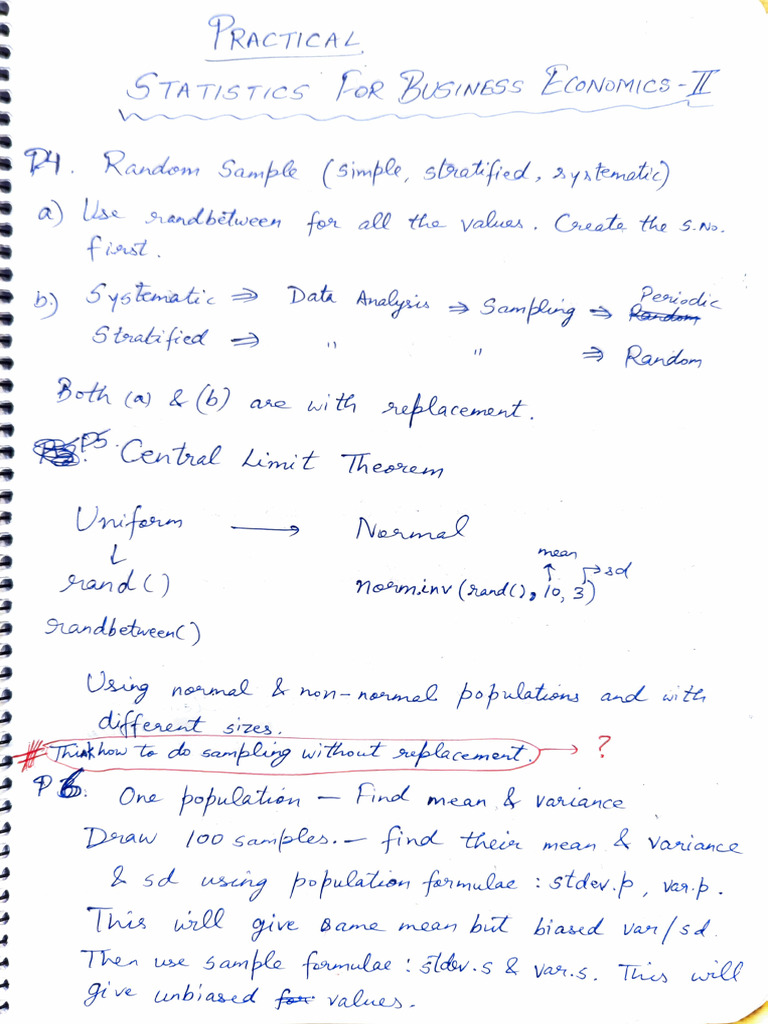 PRACTICAL
STATISTICS FOR BUSINESS ECONOMICS-II
P4. Random Sample (simple, stratified, systematic)
a) Use randbetween for all the values. Create the S.No.
first.
b) Systematic ⇒ Data Analysis ⇒ Sampling ⇒ Periodic
Random
Stratified ⇒ " " ⇒ Random
Both (a) & (b) are with replacement.
P5. Central Limit Theorem
Uniform → Normal
mean
↓ ↑ → sd
rand() norm.inv(rand(), 10, 3)
randbetween()
Using normal & non-normal populations and with
different sizes.
# Think how to do sampling without replacement. → ?
P6. One population – Find mean & variance
Draw 100 samples. – find their mean & variance
& sd using population formulae : stdev.p, var.p.
This will give same mean but biased var/sd.
Then use sample formulae : stdev.s & var.s. This will
give unbiased for values.